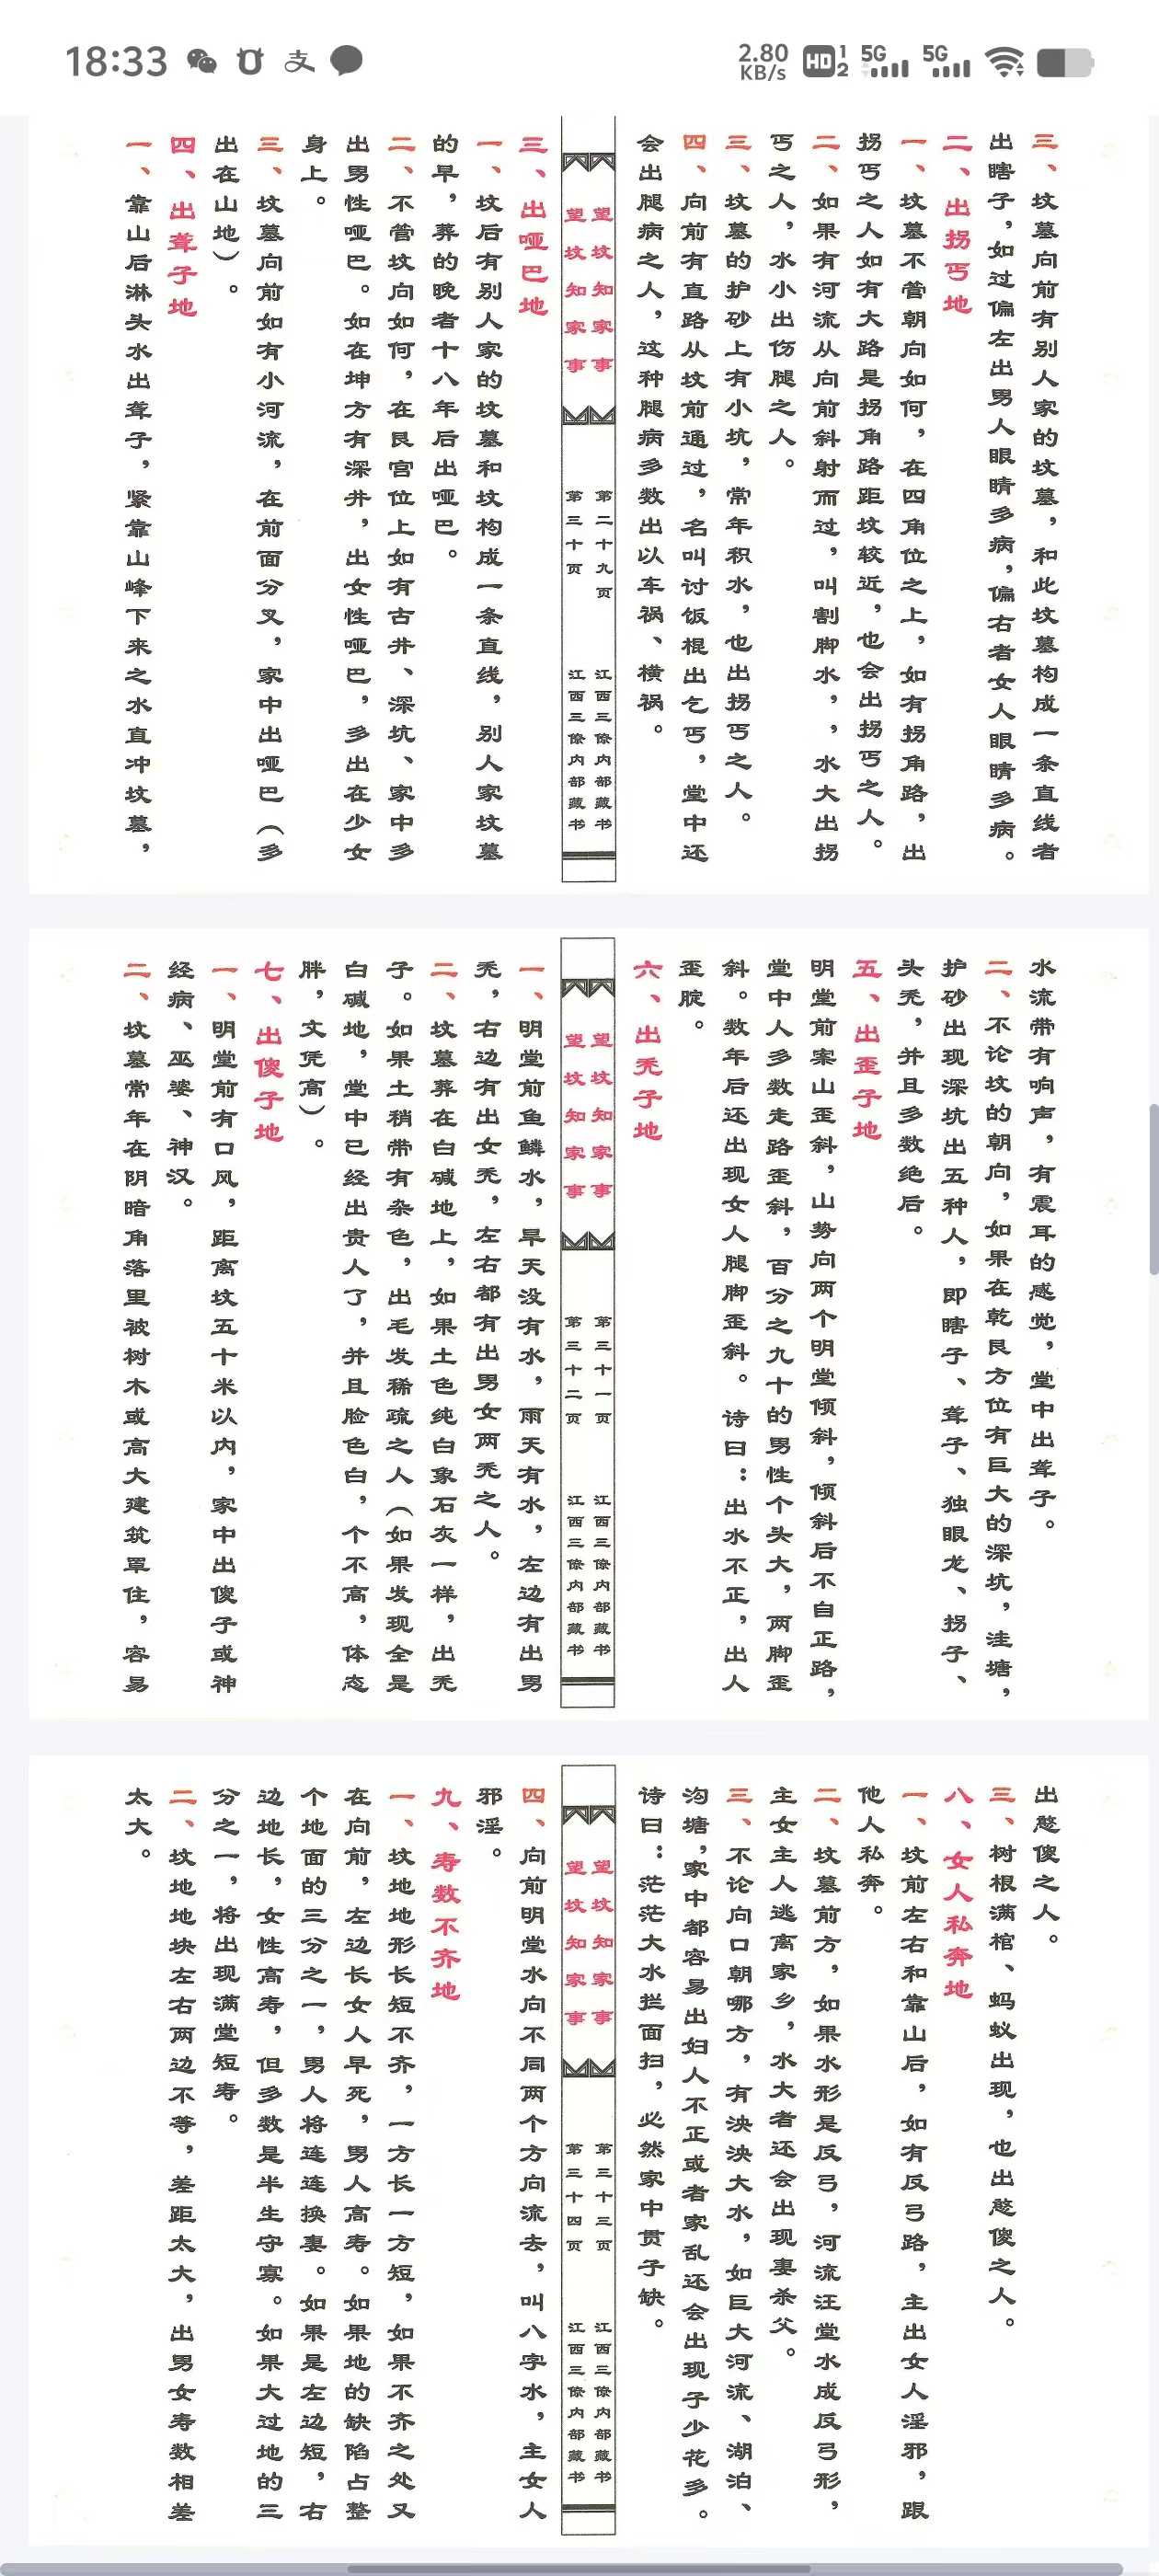 18:33
2.80 KB/s
HD 1 2
5G
5G
三、坟墓向前有别人家的坟墓，和此坟墓构成一条直线者
出瞎子，如过偏左出男人眼睛多病，偏右者女人眼睛多病。
二、出拐丐地
一、坟墓不管朝向如何，在四角位之上，如有拐角路，出
拐丐之人如有大路是拐角路距坟较近，也会出拐丐之人。
二、如果有河流从向前斜射而过，叫割脚水，，水大出拐
丐之人，水小出伤腿之人。
三、坟墓的护砂上有小坑，常年积水，也出拐丐之人。
四、向前有直路从坟前通过，名叫讨饭棍出乞丐，堂中还
会出腿病之人，这种腿病多数出以车祸、横祸。
望坟知家事
第二十九页
江西三僚内部藏书
望坟知家事
第三十页
江西三僚内部藏书
三、出哑巴地
一、坟后有别人家的坟墓和坟构成一条直线，别人家坟墓
的早，葬的晚者十八年后出哑巴。
二、不管坟向如何，在艮宫位上如有古井、深坑、家中多
出男性哑巴。如在坤方有深井，出女性哑巴，多出在少女
身上。
三、坟墓向前如有小河流，在前面分叉，家中出哑巴（多
出在山地）。
四、出聋子地
一、靠山后淋头水出聋子，紧靠山峰下来之水直冲坟墓，
水流带有响声，有震耳的感觉，堂中出聋子。
二、不论坟的朝向，如果在乾艮方位有巨大的深坑，洼塘，
护砂出现深坑出五种人，即瞎子、聋子、独眼龙、拐子、
头秃，并且多数绝后。
五、出歪子地
明堂前案山歪斜，山势向两个明堂倾斜，倾斜后不自正路，
堂中人多数走路歪斜，百分之九十的男性个头大，两脚歪
斜。数年后还出现女人腿脚歪斜。诗曰：出水不正，出人
歪腚。
六、出秃子地
望坟知家事
第三十一页
江西三僚内部藏书
望坟知家事
第三十二页
江西三僚内部藏书
一、明堂前鱼鳞水，旱天没有水，雨天有水，左边有出男
秃，右边有出女秃，左右都有出男女两秃之人。
二、坟墓葬在白碱地上，如果土色纯白象石灰一样，出秃
子。如果土稍带有杂色，出毛发稀疏之人（如果发现全是
白碱地，堂中已经出贵人了，并且脸色白，个不高，体态
胖，文凭高）。
七、出傻子地
一、明堂前有口风，距离坟五十米以内，家中出傻子或神
经病、巫婆、神汉。
二、坟墓常年在阴暗角落里被树木或高大建筑罩住，容易
出憨傻之人。
三、树根满棺、蚂蚁出现，也出憨傻之人。
八、女人私奔地
一、坟前左右和靠山后，如有反弓路，主出女人淫邪，跟
他人私奔。
二、坟墓前方，如果水形是反弓，河流汪堂水成反弓形，
主女主人逃离家乡，水大者还会出现妻杀父。
三、不论向口朝哪方，有泱泱大水，如巨大河流、湖泊、
沟塘，家中都容易出妇人不正或者家乱还会出现子少花多。
诗曰：茫茫大水拦面扫，必然家中贯子缺。
望坟知家事
第三十三页
江西三僚内部藏书
望坟知家事
第三十四页
江西三僚内部藏书
四、向前明堂水向不同两个方向流去，叫八字水，主女人
邪淫。
九、寿数不齐地
一、坟地地形长短不齐，一方长一方短，如果不齐之处又
在向前，左边长女人早死，男人高寿。如果地的缺陷占整
个地面的三分之一，男人将连连换妻。如果是左边短，右
边地长，女性高寿，但多数是半生守寡。如果大过地的三
分之一，将出现满堂短寿。
二、坟地地块左右两边不等，差距太大，出男女寿数相差
太大。